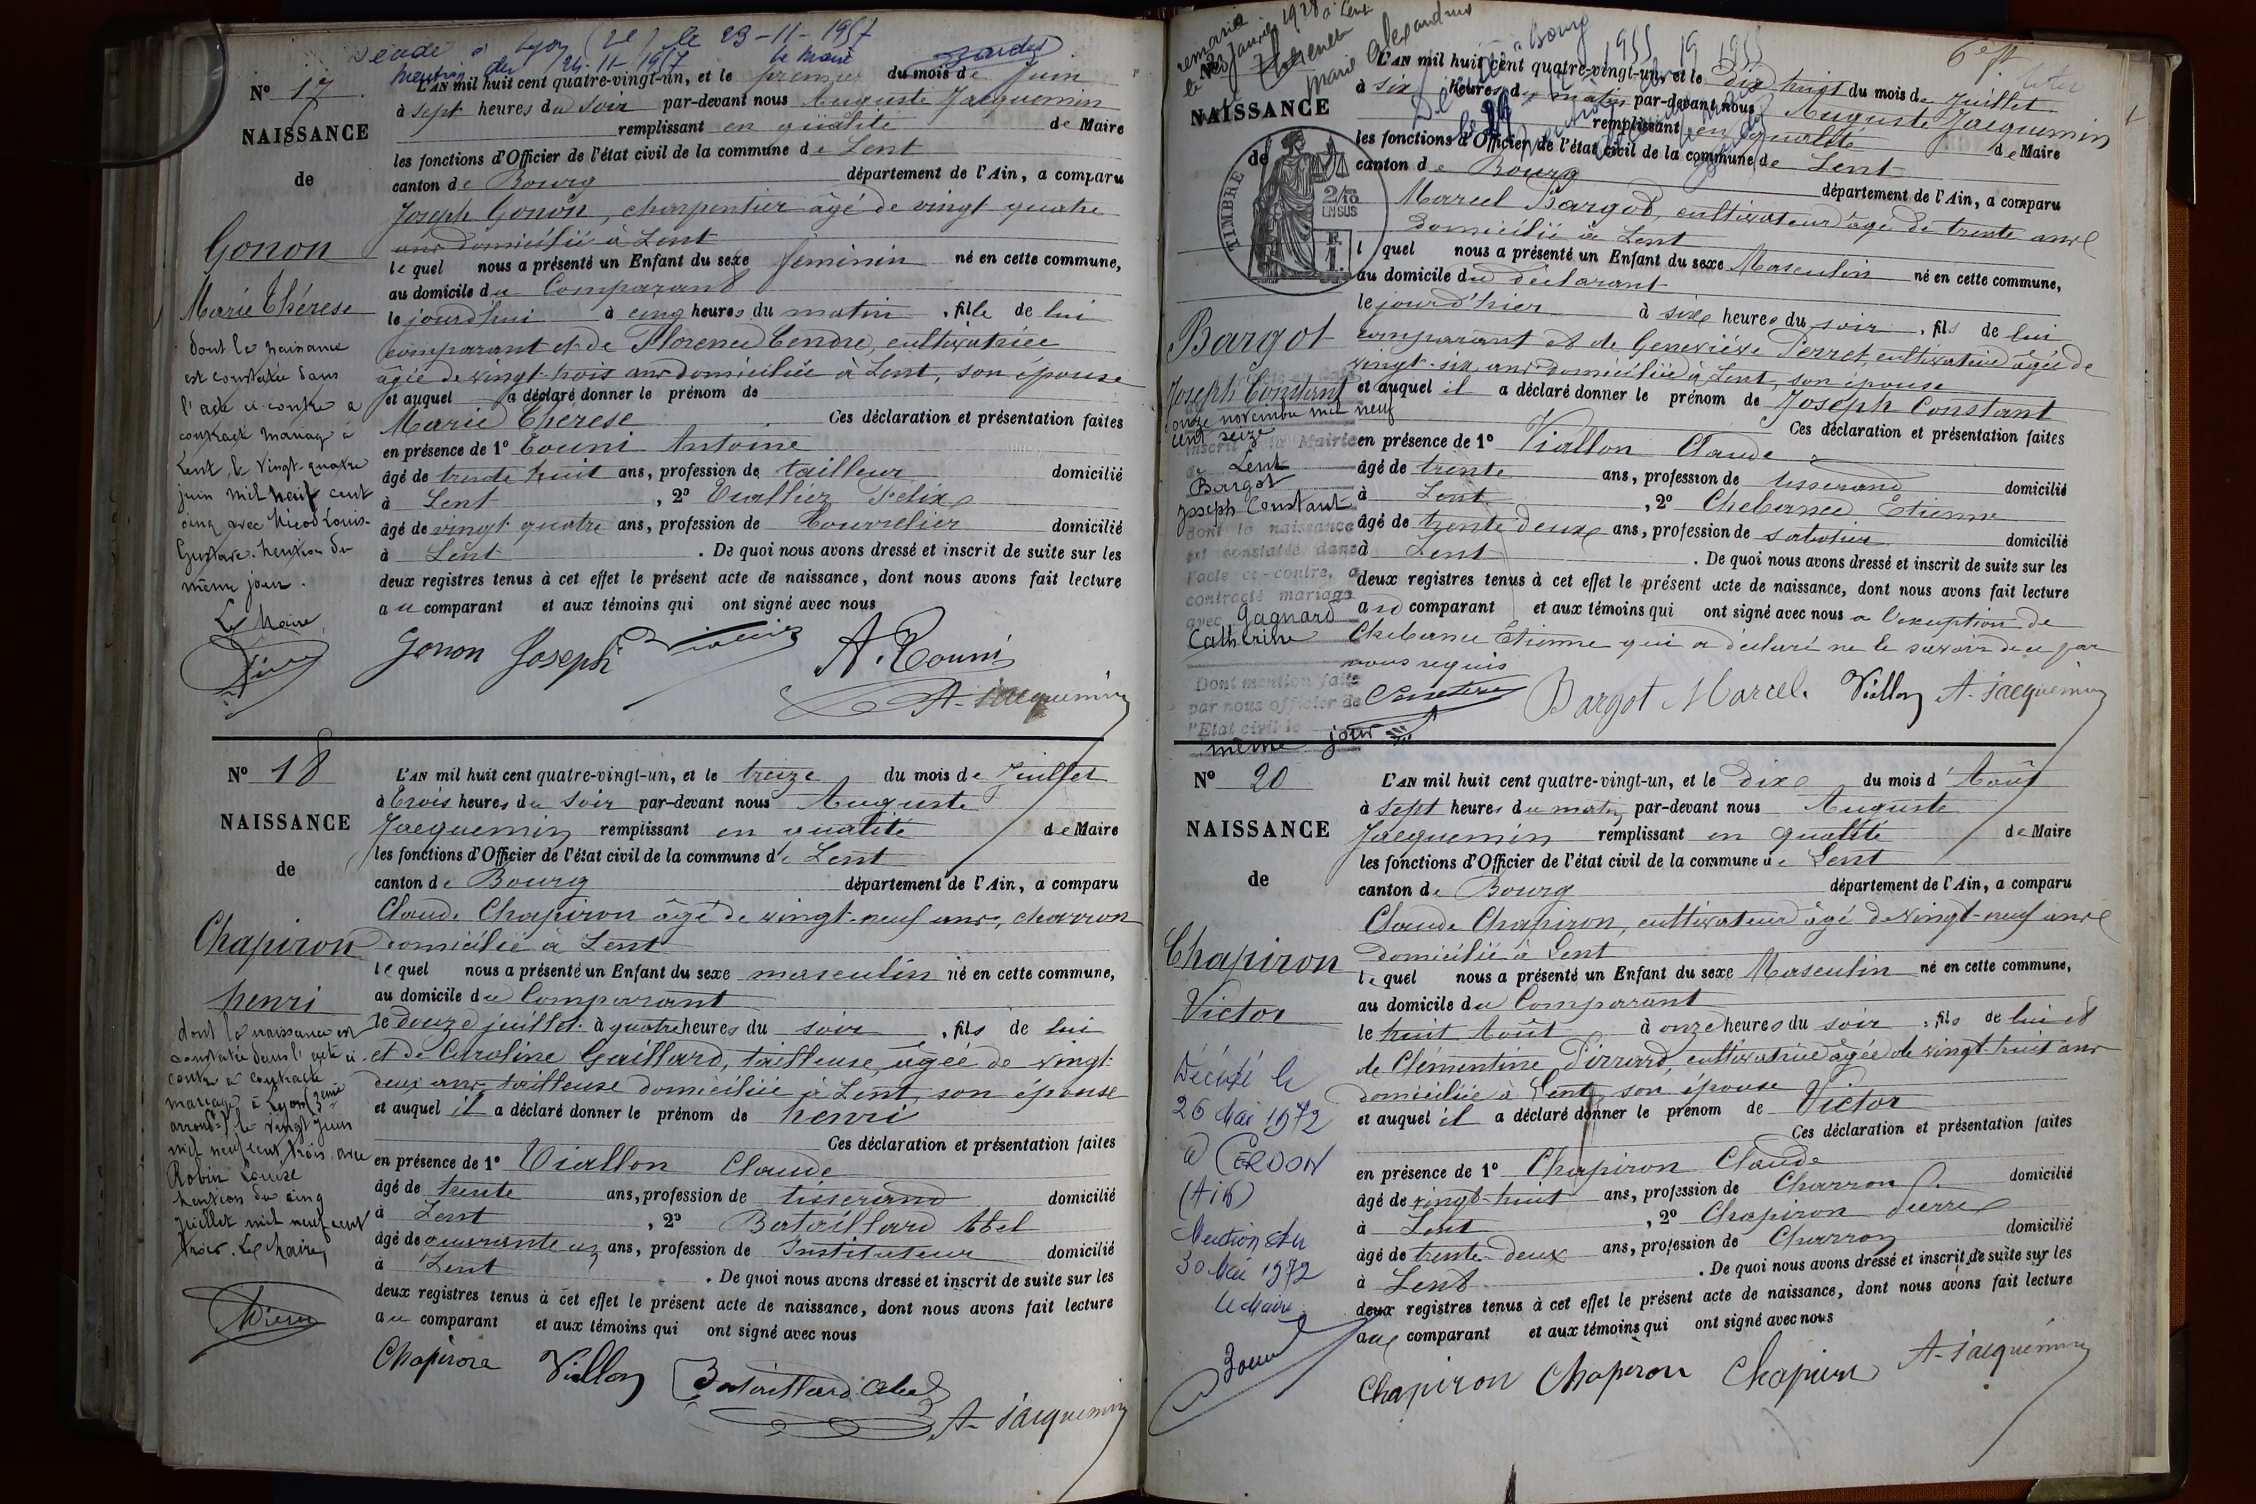 Décédé à Lyon (2e) le 23-11-1957
mention du 24-11-1957 le Maire
N° 17
NAISSANCE
de
Gonon
Marie Thérèse
dont la naissance
est constatée dans
l'acte ci-contre a
contracté mariage à
Lent, le vingt-quatre
juin mil neuf cent
cinq avec Nicod Louis-
Gustave. Mention du
même jour.
Le Maire,
L'AN mil huit cent quatre-vingt-un, et le premier du mois de Juin
à sept heures du soir par-devant nous Auguste Jacquemin
remplissant en qualité de Maire
les fonctions d'Officier de l'état civil de la commune de Lent
canton de Bourg département de l'Ain, a comparu
Joseph Gonon, charpentier âgé de vingt quatre
ans domicilié à Lent
lequel nous a présenté un Enfant du sexe féminin né en cette commune,
au domicile du Comparant
le jourd'hui à cinq heures du matin, fille de lui
comparant et de Florence Tendre, cultivatrice
âgée de vingt-trois ans domiciliée à Lent, son épouse
et auquel a déclaré donner le prénom de
Marie Therese Ces déclaration et présentation faites
en présence de 1° Touni Antoine
âgé de trente huit ans, profession de tailleur domicilié
à Lent, 2° Félix
âgé de vingt quatre ans, profession de Bourrelier domicilié
à Lent. De quoi nous avons dressé et inscrit de suite sur les
deux registres tenus à cet effet le présent acte de naissance, dont nous avons fait lecture
au comparant et aux témoins qui ont signé avec nous
Gonon Joseph A. Touni
A. Jacquemin
N° 18
NAISSANCE
de
Chapiron
henri
dont la naissance est
constatée dans l'acte ci
contre a contracté
mariage à Lyon (3eme
arrondt) le vingt Juin
mil neuf cent trois avec
Robin Louise
Mention du cinq
Juillet mil neuf cent
trois. Le Maire,
L'AN mil huit cent quatre-vingt-un, et le treize du mois de Juillet
à Trois heures du soir par-devant nous Auguste
Jacquemin remplissant en qualité de Maire
les fonctions d'Officier de l'état civil de la commune de Lent
canton de Bourg département de l'Ain, a comparu
Claude Chapiron âgé de vingt-neuf ans, charron
domicilié à Lent
lequel nous a présenté un Enfant du sexe masculin né en cette commune,
au domicile du Comparant
le douze juillet à quatre heures du soir, fils de lui
et de Caroline Gaillard, tailleuse, âgée de vingt
deux ans tailleuse domiciliée à Lent, son épouse
et auquel il a déclaré donner le prénom de henri
Ces déclaration et présentation faites
en présence de 1° Viallon Claude
âgé de trente ans, profession de tisserand domicilié
à Lent, 2° Bataillard Abel
âgé de quarante un ans, profession de Instituteur domicilié
à Lent. De quoi nous avons dressé et inscrit de suite sur les
deux registres tenus à cet effet le présent acte de naissance, dont nous avons fait lecture
au comparant et aux témoins qui ont signé avec nous
Chapiron Viallon Bataillard Abel
A. Jacquemin
remarié
le 28 Janvier 1928 à Lent
Marie Alexandrine
NAISSANCE
de
TIMBRE
2/10
EN SUS
F.
1.
Bargot
Joseph Constant
onze novembre mil neuf
cent seize
inscrit à la Mairie
de Lent
Bargot
Joseph Constant
dont la naissance
est constatée dans
l'acte ci-contre, a
contracté mariage
avec Gagnard
Catherine
Dont mention faite
par nous officier de
l'Etat civil le
même jour
L'AN mil huit cent quatre-vingt-un, et le dix huit du mois de Juillet
à six heures du matin par-devant nous Auguste Jacquemin
remplissant en qualité de Maire
les fonctions d'Officier de l'état civil de la commune de Lent
canton de Bourg département de l'Ain, a comparu
Marcel Bargot, cultivateur âgé de trente ans
domicilié à Lent
lquel nous a présenté un Enfant du sexe Masculin né en cette commune,
au domicile du déclarant
le jourd'hier à six heures du soir, fils de lui
comparant et de Geneviève Perret, cultivatrice âgée de
vingt-six ans domiciliée à Lent, son épouse
et auquel il a déclaré donner le prénom de Joseph Constant
Ces déclaration et présentation faites
en présence de 1° Viallon Claude
âgé de trente ans, profession de tisserand domicilié
à Lent, 2° Chebance Etienne
âgé de trente deux ans, profession de sabotier domicilié
à Lent. De quoi nous avons dressé et inscrit de suite sur les
deux registres tenus à cet effet le présent acte de naissance, dont nous avons fait lecture
au comparant et aux témoins qui ont signé avec nous a l'exception de
Chebance Étienne qui a déclaré ne le savoir de ce par
nous requis
Bargot Marcel. Viallon A. Jacquemin
N° 20
NAISSANCE
de
Chapiron
Victor
Décédé le
26 Mai 1972
à CERDON
(AIN)
Mention du
30 Mai 1972
le Maire
L'AN mil huit cent quatre-vingt-un, et le Dix du mois d'Août
à sept heures du matin par-devant nous Auguste
Jacquemin remplissant en qualité de Maire
les fonctions d'Officier de l'état civil de la commune de Lent
canton de Bourg département de l'Ain, a comparu
Claude Chapiron, cultivateur âgé de vingt-neuf ans
domicilié à Lent
lequel nous a présenté un Enfant du sexe Masculin né en cette commune,
au domicile du Comparant
le huit Août à onze heures du soir, fils de lui et
de Clémentine Pirrard, cultivatrice âgée de vingt-huit ans
domiciliée à Lent, son épouse
et auquel il a déclaré donner le prénom de Victor
Ces déclaration et présentation faites
en présence de 1° Chapiron Claude
âgé de vingt-huit ans, profession de Charron domicilié
à Lent, 2° Chapiron Pierre
âgé de trente-deux ans, profession de Charron domicilié
à Lent. De quoi nous avons dressé et inscrit de suite sur les
deux registres tenus à cet effet le présent acte de naissance, dont nous avons fait lecture
aux comparant et aux témoins qui ont signé avec nous
Chapiron Chapiron Chapiron A. Jacquemin